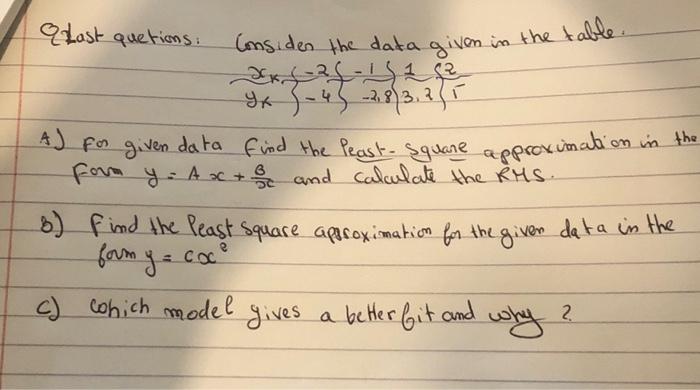 Q Last quetions: Consider the data given in the table.
xₖ -2 -1 1 2
yₖ -4 -2,8 3.2 5
A) For given data find the least-square approximation in the
Form y = Ax + B/x and calculate the RMS.
B) Find the least square approximation for the given data in the
form y = cx²
C) Which model gives a better fit and why ?